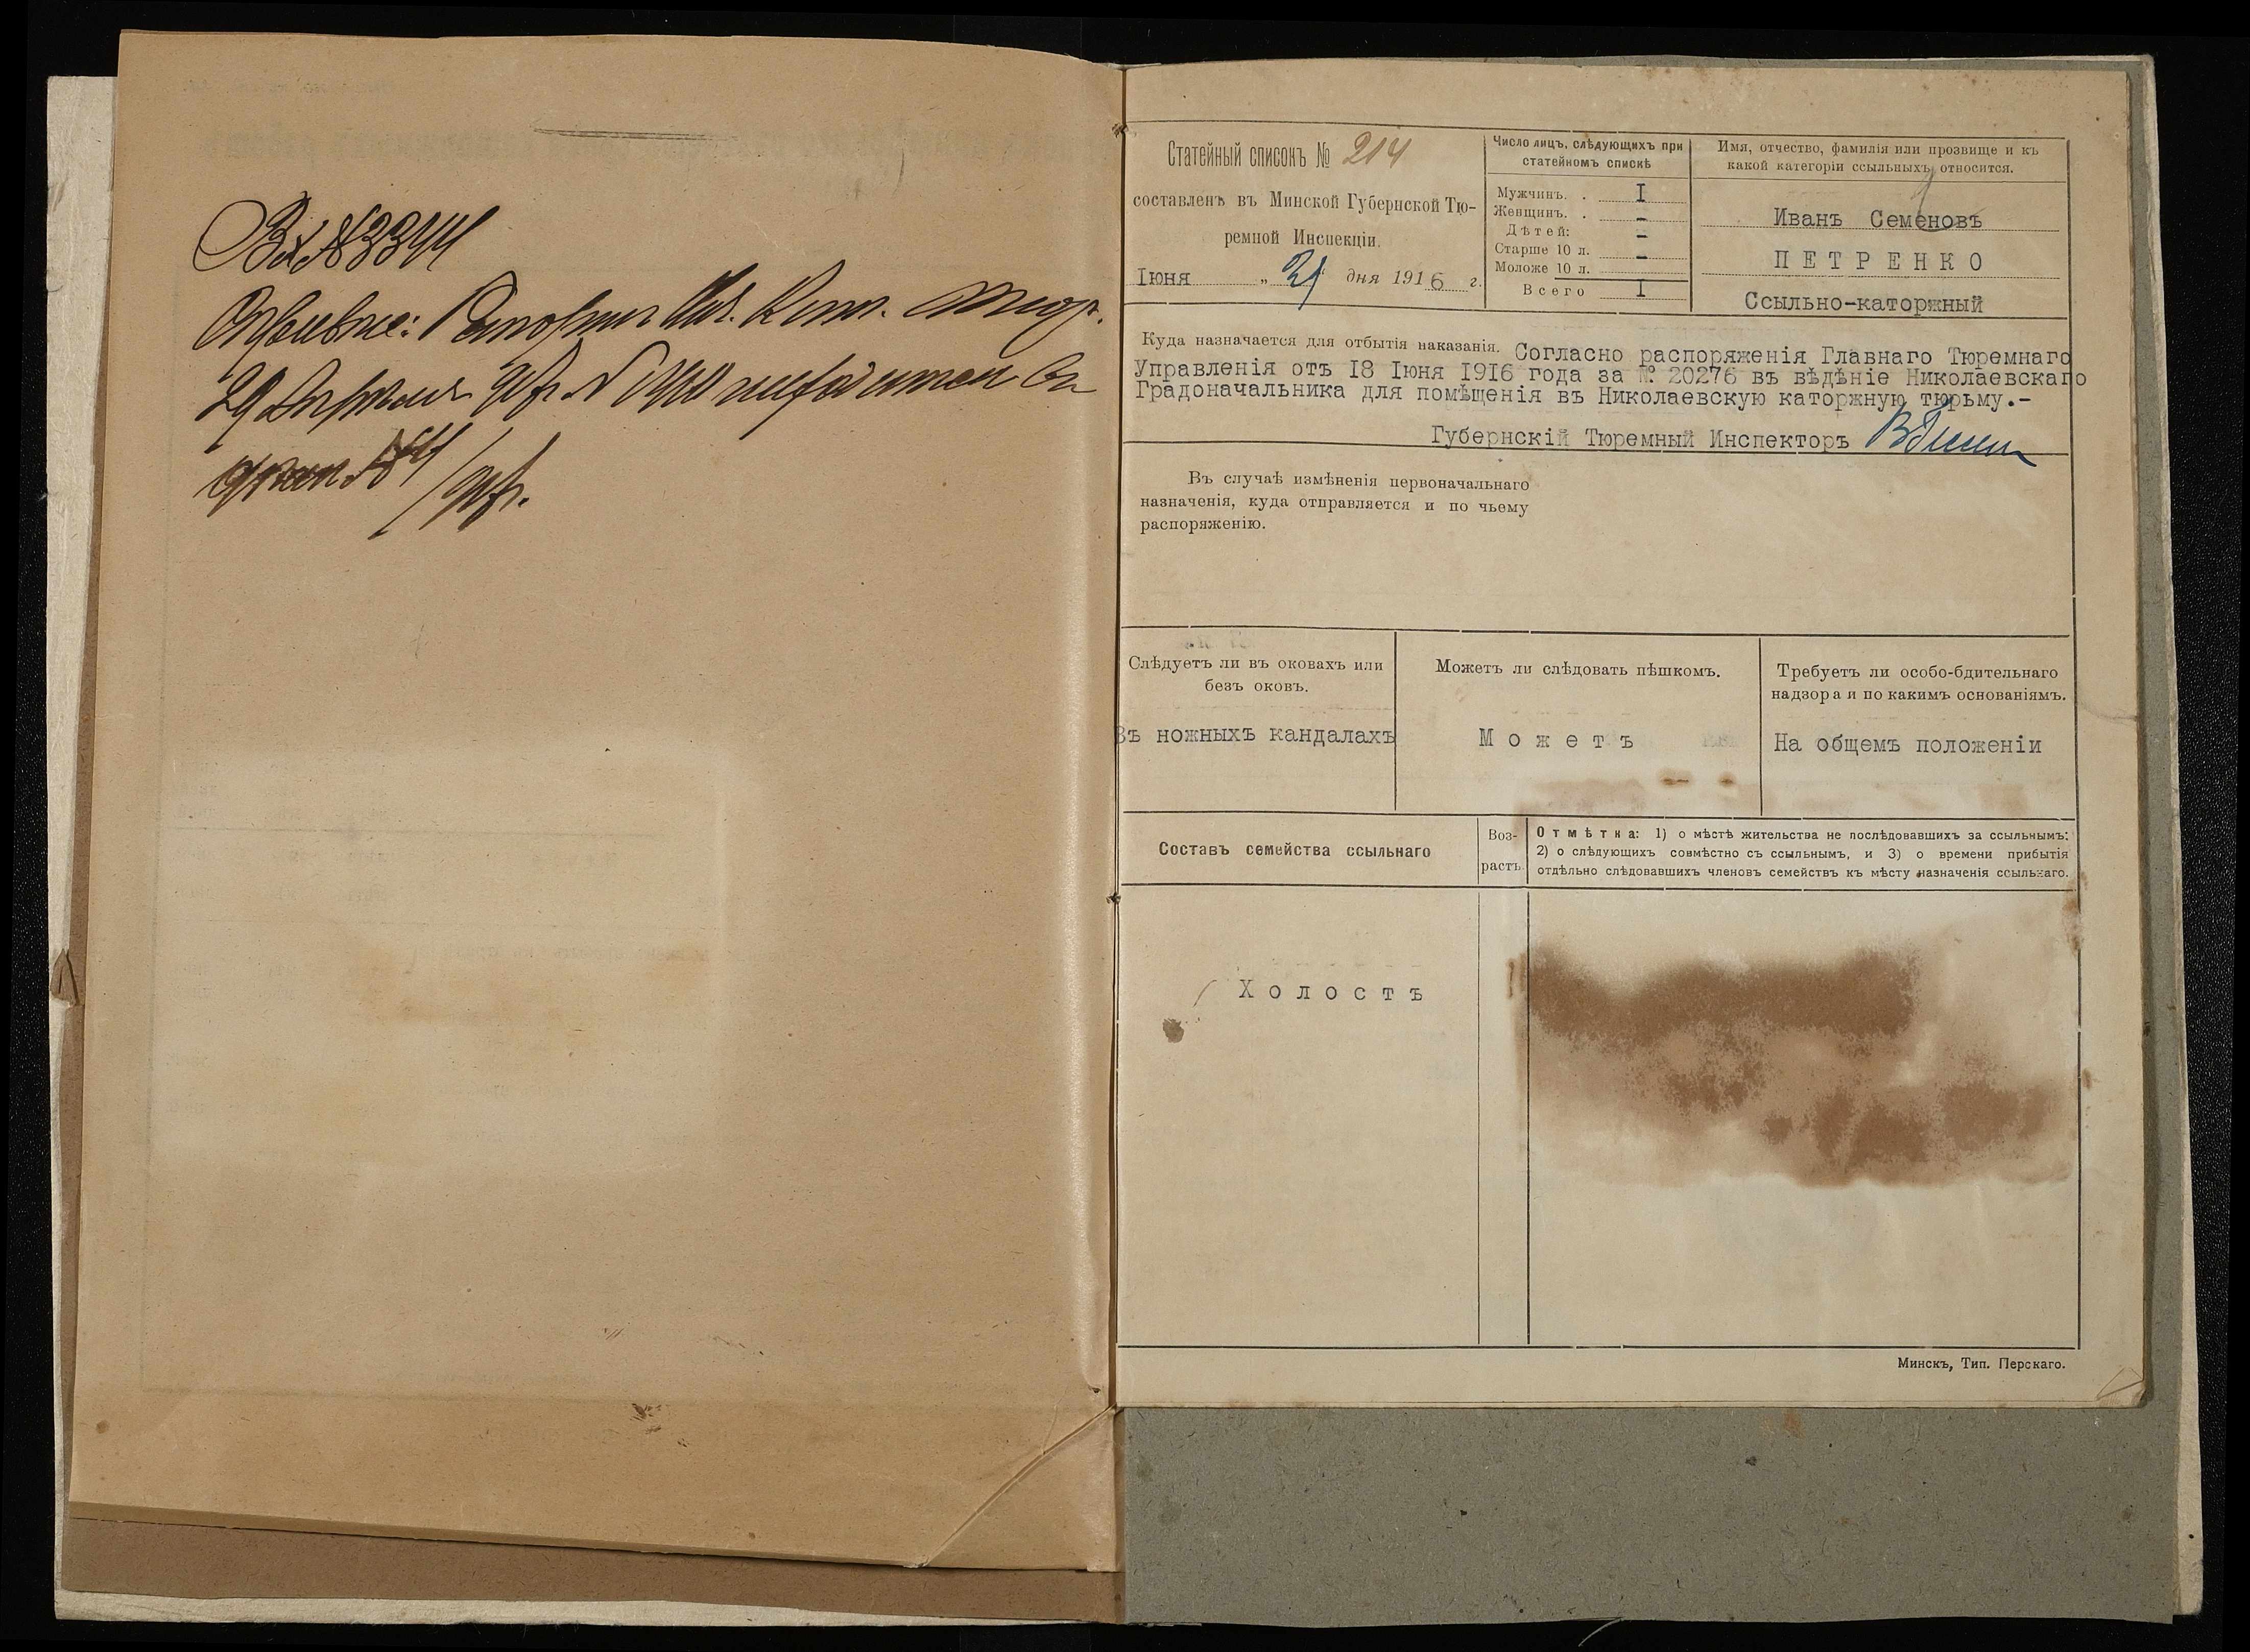 Вх № 3344
29 Апрѣля
Статейный списокъ № 214
составленъ въ Минской Губернской Тю-
ремной Инспекціи.
Іюня „ 21 дня 1916 г.
Число лицъ, слѣдующихъ при
статейномъ спискѣ
Мужчинъ. . I
Женщинъ. . -
Дѣтей: -
Старше 10 л. -
Моложе 10 л.
Всего I
Имя, отчество, фамилія или прозвище и къ
какой категоріи ссыльныхъ относится.
Иванъ Семеновъ
ПЕТРЕНКО
Ссыльно-каторжный
Куда назначается для отбытія наказанія. Согласно распоряженія Главнаго Тюремнаго
Управленія отъ I8 Іюня I9I6 года за №. 20276 въ вѣдѣніе Николаевскаго
Градоначальника для помѣщенія въ Николаевскую каторжную тюрьму.-
Губернскій Тюремный Инспекторъ
Въ случаѣ измѣненія первоначальнаго
назначенія, куда отправляется и по чьему
распоряженію.
Слѣдуетъ ли въ оковахъ или
безъ оковъ.
Въ ножныхъ кандалахъ
Можетъ ли слѣдовать пѣшкомъ.
Можетъ
Требуетъ ли особо-бдительнаго
надзора и по какимъ основаніямъ.
На общемъ положеніи
Составъ семейства ссыльнаго
Воз-
растъ.
Отмѣтка: 1) о мѣстѣ жительства не послѣдовавшихъ за ссыльнымъ;
2) о слѣдующихъ совмѣстно съ ссыльнымъ, и 3) о времени прибытія
отдѣльно слѣдовавшихъ членовъ семействъ къ мѣсту назначенія ссыльнаго.
Холостъ
Минскъ, Тип. Перскаго.